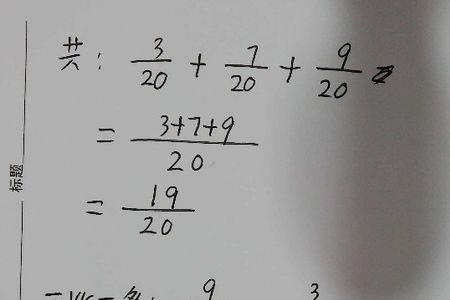 共: 3/20 + 7/20 + 9/20
= 3+7+9/20
= 19/20
标题
9 3